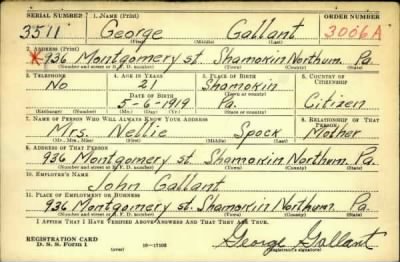 SERIAL NUMBER 1. NAME (Print) ORDER NUMBER
3511 George Gallant 3006A
(First) (Middle) (Last)
2. ADDRESS (Print)
X 936 Montgomery st. Shamokin Northum. Pa.
(Number and street or R. F. D. number) (Town) (County) (State)
3. TELEPHONE 4. AGE IN YEARS 5. PLACE OF BIRTH 6. COUNTRY OF CITIZENSHIP
No 21 Shamokin
DATE OF BIRTH (Town or county)
5-6-1919 Pa. Citizen
(Exchange) (Number) (Mo.) (Day) (Yr.) (State or country)
7. NAME OF PERSON WHO WILL ALWAYS KNOW YOUR ADDRESS 8. RELATIONSHIP OF THAT PERSON
Mrs. Nellie Spock Mother
(Mr., Mrs., Miss) (First) (Middle) (Last)
9. ADDRESS OF THAT PERSON
936 Montgomery st. Shamokin Northum. Pa.
(Number and street or R. F. D. number) (Town) (County) (State)
10. EMPLOYER'S NAME
John Gallant
11. PLACE OF EMPLOYMENT OR BUSINESS
936 Montgomery st. Shamokin Northum. Pa.
(Number and street or R. F. D. number) (Town) (County) (State)
I AFFIRM THAT I HAVE VERIFIED ABOVE ANSWERS AND THAT THEY ARE TRUE.
REGISTRATION CARD George Gallant
D. S. S. Form 1 (over) 16—17105 (Registrant's signature)